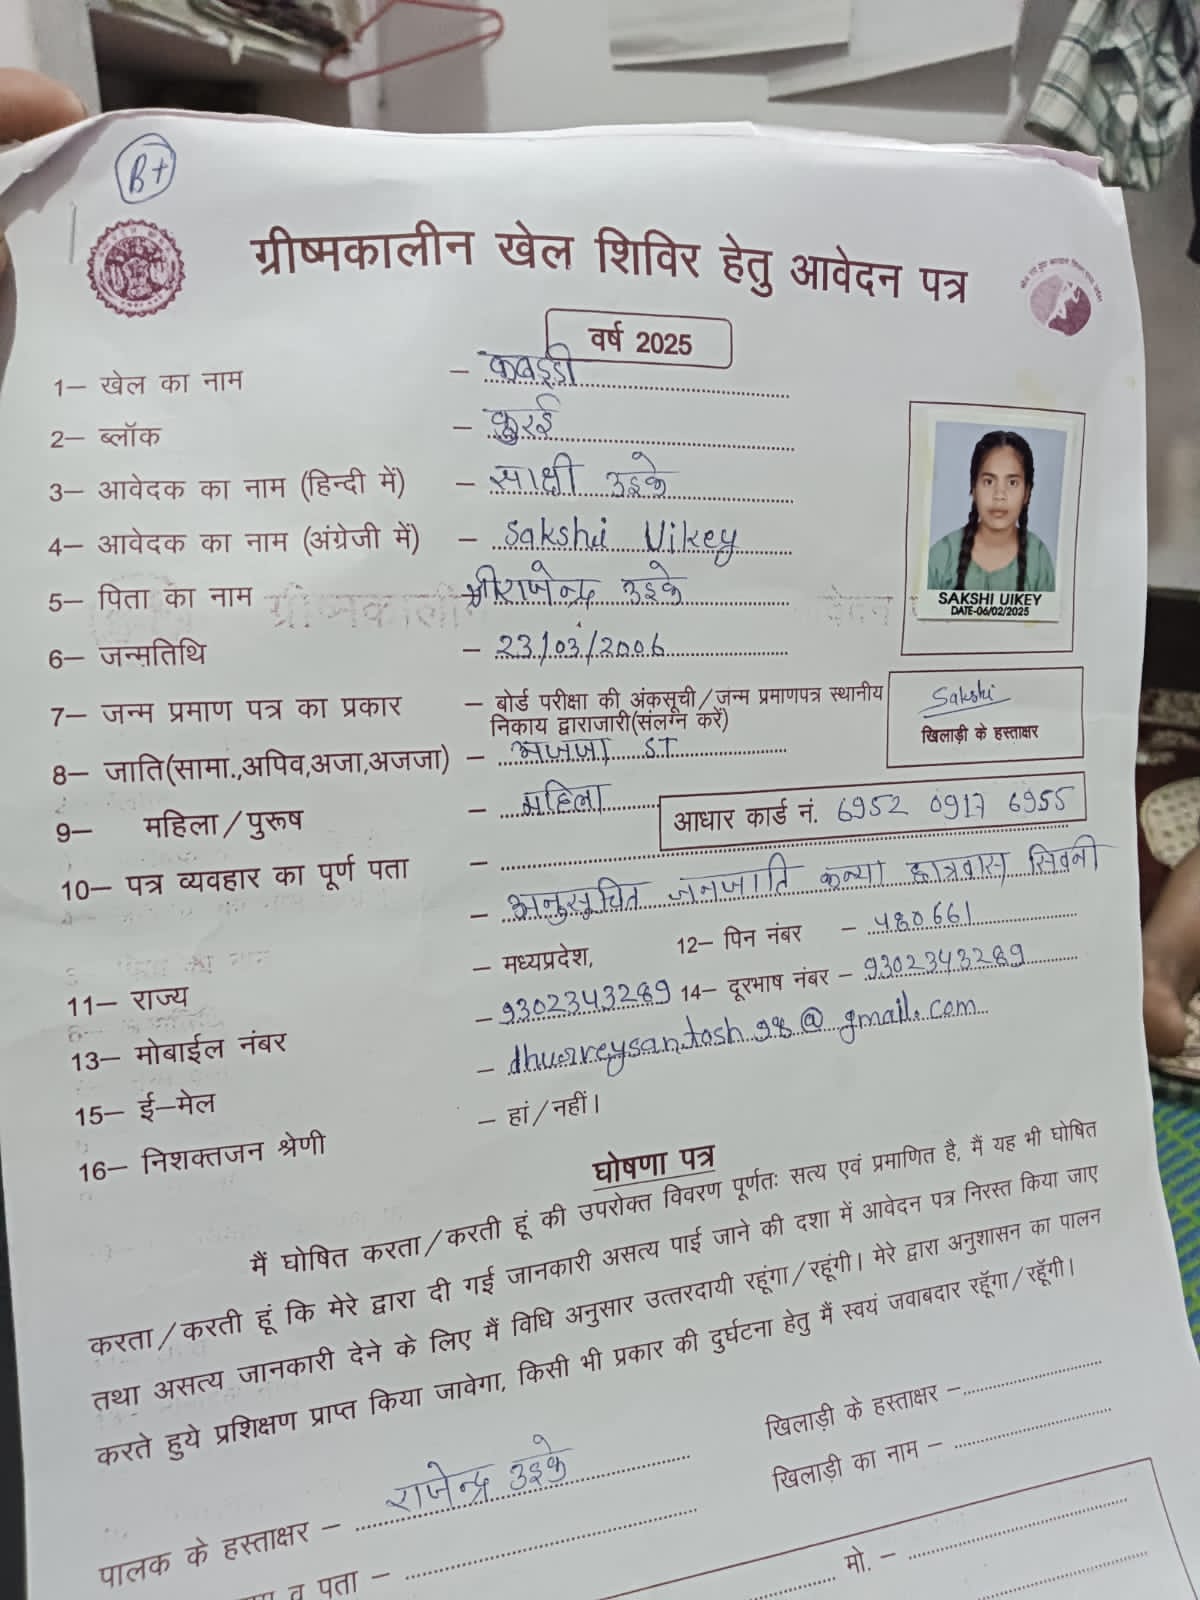 B+
ग्रीष्मकालीन खेल शिविर हेतु आवेदन पत्र
वर्ष 2025
1– खेल का नाम – कबड्डी
2– ब्लॉक – कुरई
3– आवेदक का नाम (हिन्दी में) – साक्षी उइके
4– आवेदक का नाम (अंग्रेजी में) – Sakshi Uikey
SAKSHI UIKEY
DATE-06/02/2025
5– पिता का नाम – श्री राजेन्द्र उइके
6– जन्मतिथि – 23/03/2006
7– जन्म प्रमाण पत्र का प्रकार – बोर्ड परीक्षा की अंकसूची/जन्म प्रमाणपत्र स्थानीय
निकाय द्वाराजारी(संलग्न करें)
Sakshi
खिलाड़ी के हस्ताक्षर
8– जाति(सामा.,अपिव,अजा,अजजा) – अजजा ST
9– महिला/पुरूष – महिला
आधार कार्ड नं. 6952 0917 6955
10– पत्र व्यवहार का पूर्ण पता –
– अनुसूचित जनजाति कन्या छात्रावास सिवनी
11– राज्य – मध्यप्रदेश, 12– पिन नंबर – 480661
13– मोबाईल नंबर – 9302343289 14– दूरभाष नंबर – 9302343289
15– ई–मेल – dhurveysantosh98@gmail.com
16– निशक्तजन श्रेणी – हां/नहीं।
घोषणा पत्र
मैं घोषित करता/करती हूं की उपरोक्त विवरण पूर्णतः सत्य एवं प्रमाणित है, मैं यह भी घोषित
करता/करती हूं कि मेरे द्वारा दी गई जानकारी असत्य पाई जाने की दशा में आवेदन पत्र निरस्त किया जाए
तथा असत्य जानकारी देने के लिए मैं विधि अनुसार उत्तरदायी रहूंगा/रहूंगी। मेरे द्वारा अनुशासन का पालन
करते हुये प्रशिक्षण प्राप्त किया जावेगा, किसी भी प्रकार की दुर्घटना हेतु मैं स्वयं जवाबदार रहूॅगा/रहूॅगी।
खिलाड़ी के हस्ताक्षर –
खिलाड़ी का नाम –
पालक के हस्ताक्षर – राजेन्द्र उइके
व पता –
मो. –